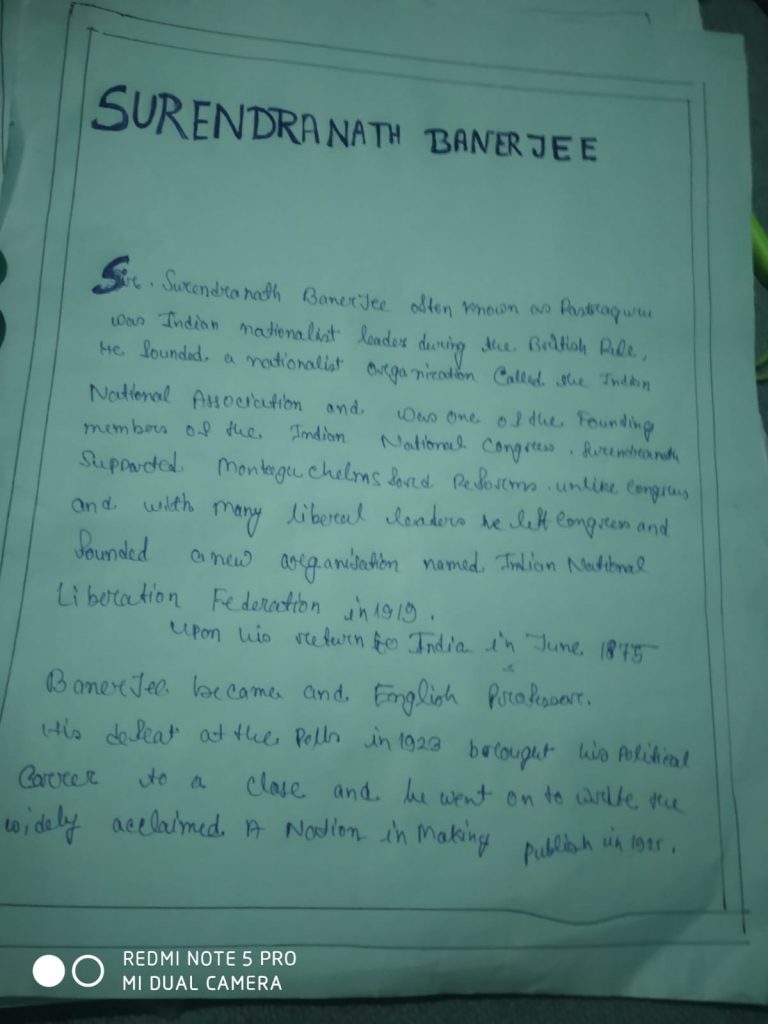 SURENDRANATH BANERJEE
Sir. Surendranath Banerjee often known as Rastraguru
was Indian nationalist leader during the British Rule,
He founded a nationalist organization Called the Indian
National Association and was one of the Founding
members of the Indian National Congress. Surendranath
Supported Montagu chelmsford Reforms. unlike congress
and with many liberal leaders he left Congress and
founded a new organisation named Indian National
Liberation Federation in 1919.
upon his return to India in June 1875
Banerjee became and English Professor.
His defeat at the Polls in 1923 brought his Political
Career to a close and he went on to write the
widely acclaimed A Nation in Making Publish in 1925.
REDMI NOTE 5 PRO
MI DUAL CAMERA